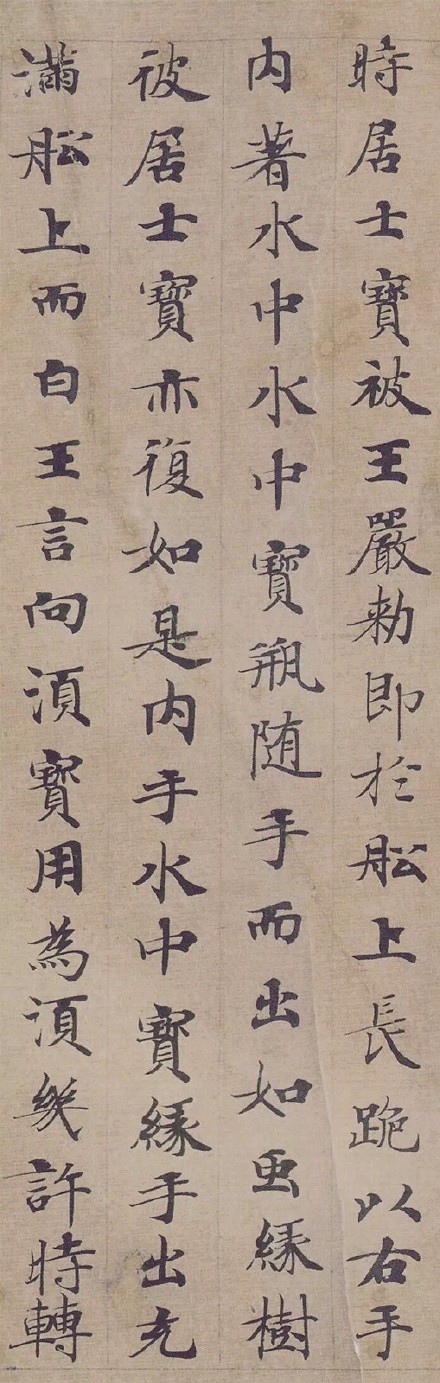 時居士寶被王嚴勑即於舩上長跪以右手
内著水中水中寶瓶随手而出如虫緣樹
彼居士寶亦復如是内手水中寶緣手出充
滿舩上而白王言向湏寶用為湏幾許時轉